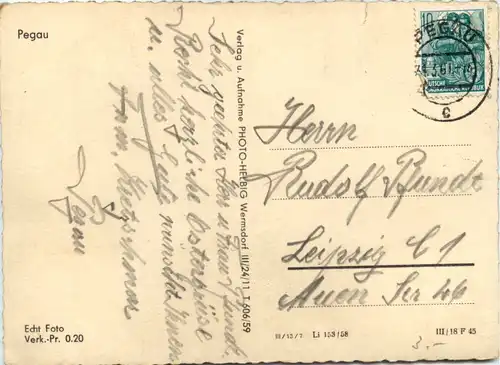 Pegau
Sehr geehrter Herr u. Frau Bundt.
Recht herzliche Ostergrüsse
u. alles Gute wünscht Ihnen
Fam.
Pegau
Echt Foto
Verk.-Pr. 0.20
Verlag u. Aufnahme PHOTO-HELBIG Wermsdorf III/24/11 T 606/59
10
PEGAU
DEUTSCHE
DEMOKRATISCHE REPUBLIK
c
Herrn
Rudolf Bundt
Leipzig C 1
Auen Str 46
III/13/7 Li 153/58
III/18 F 45
3.-